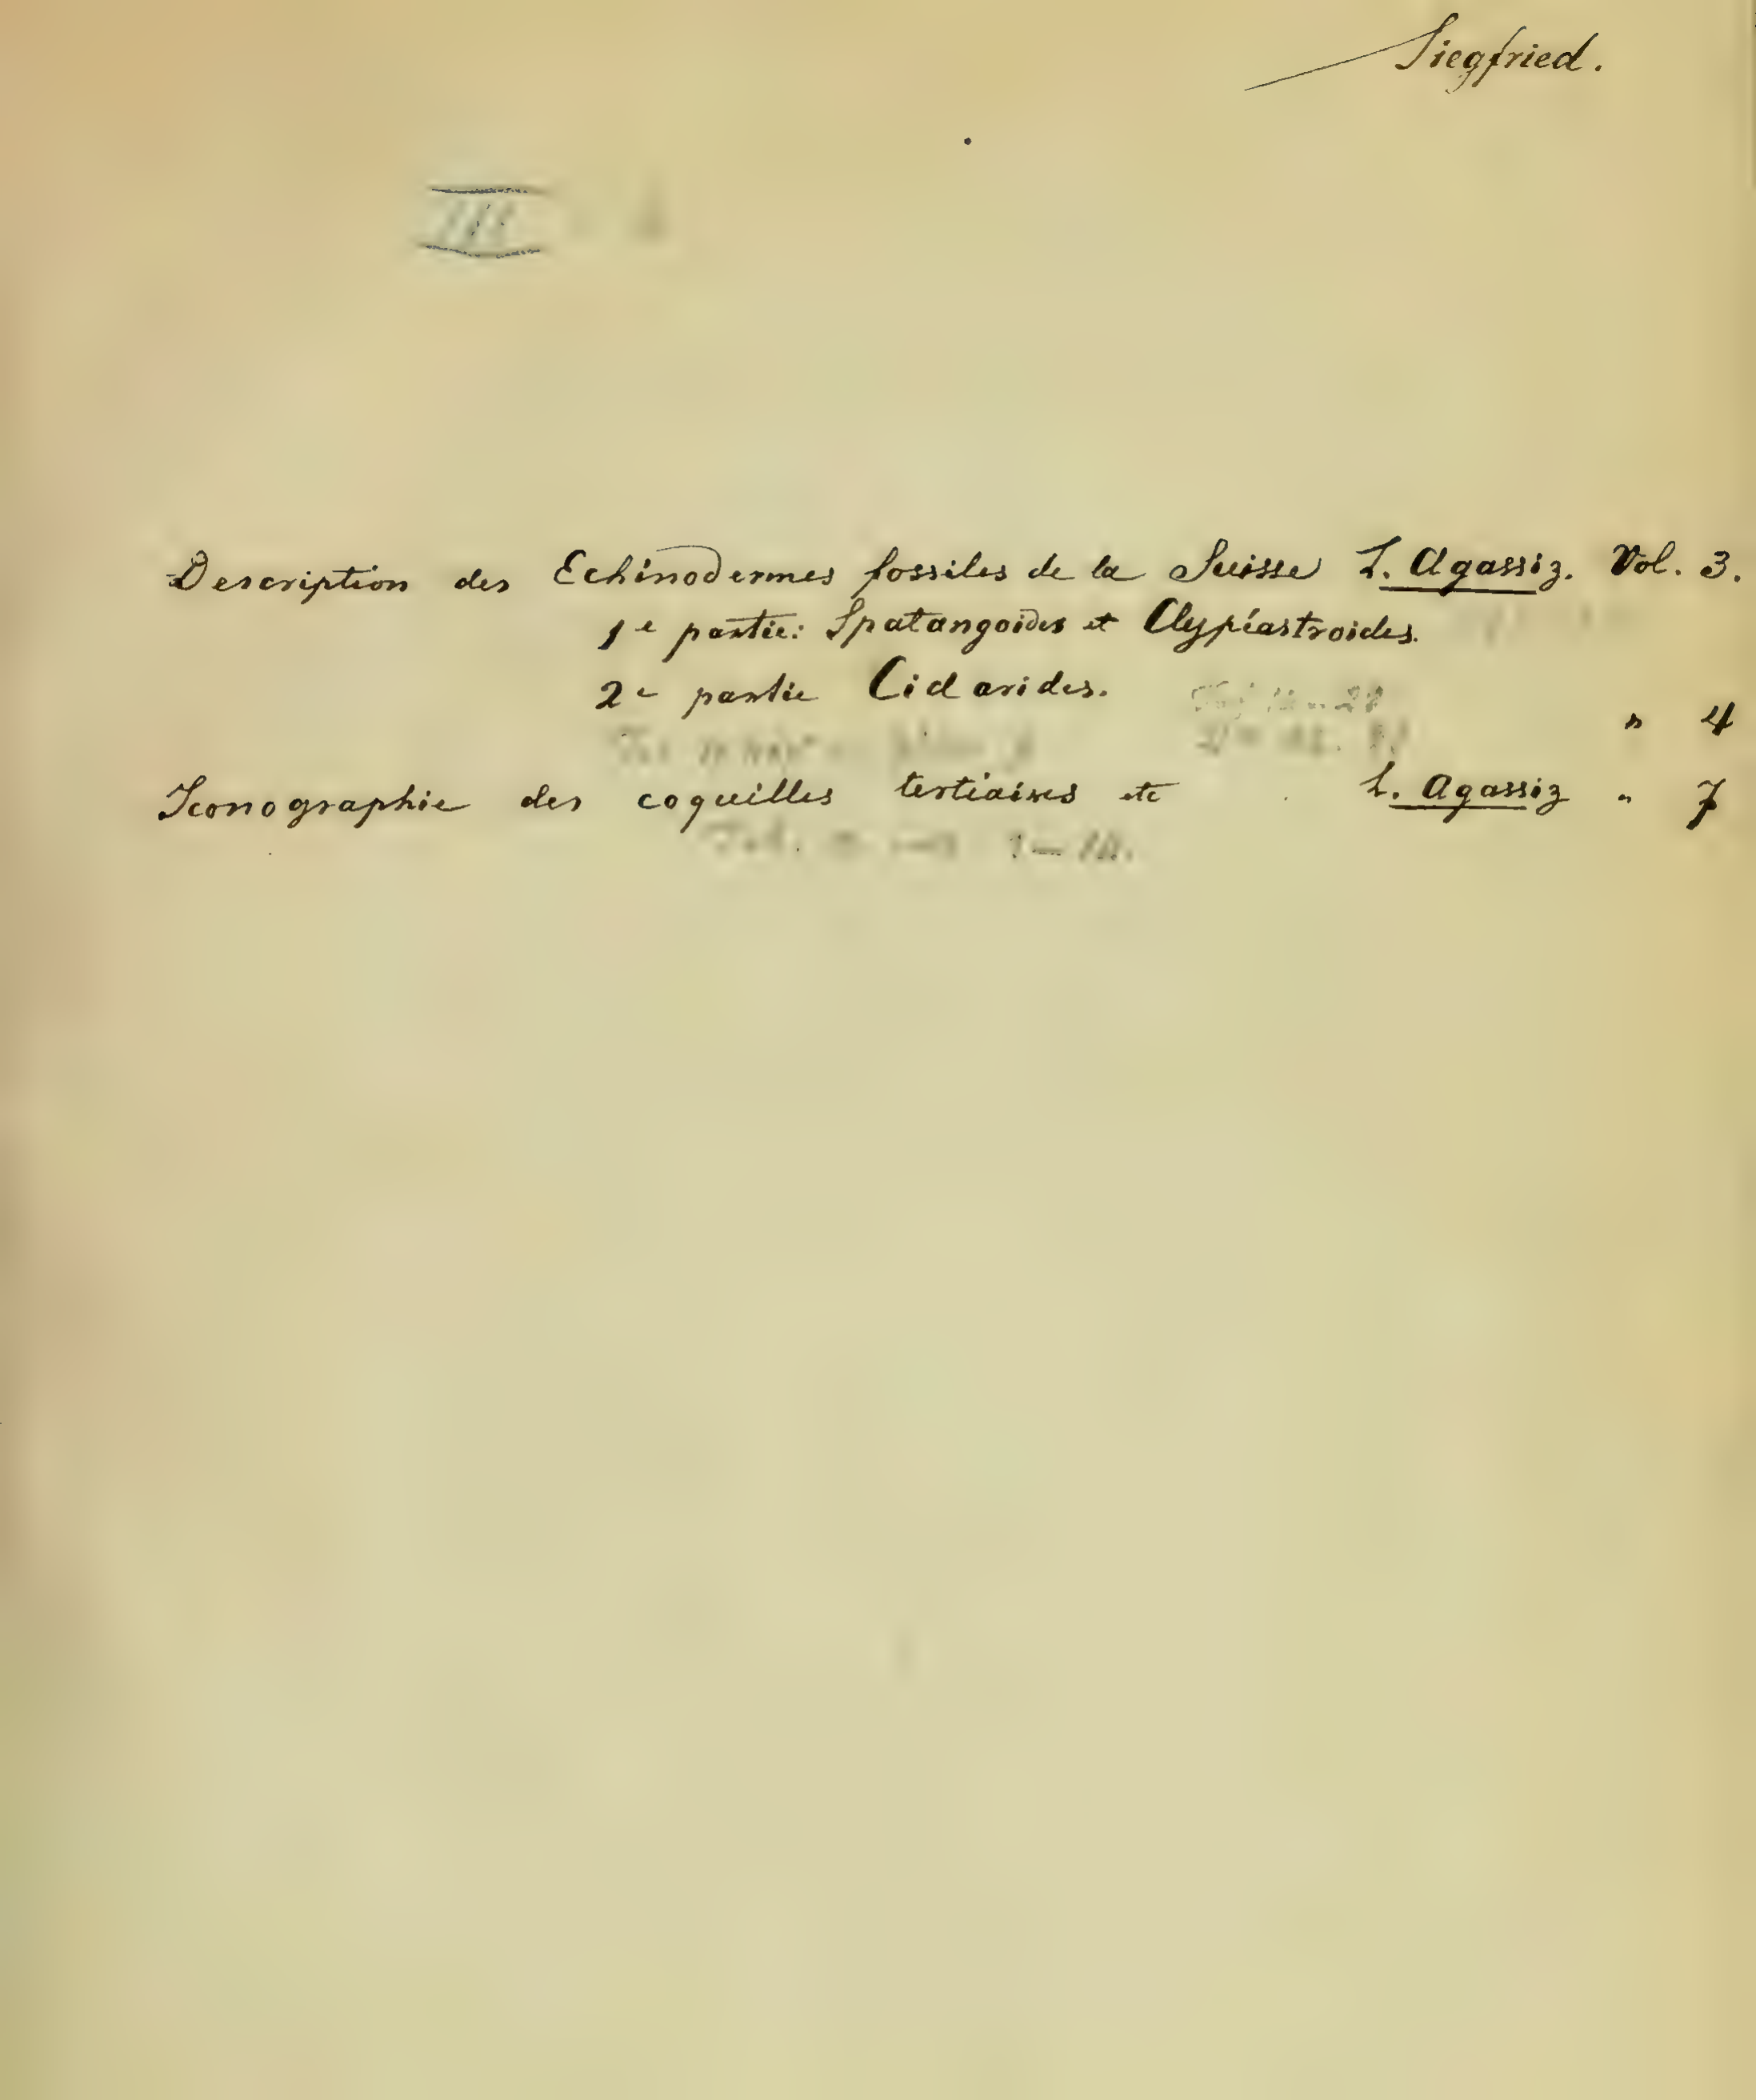 Siegfried.
Description des Echinodermes fossiles de la Suisse L. Agassiz. Vol. 3.
1e partie: Spatangoides et Clypéastroides.
2e partie Cidarides.
" 4
Iconographie des coquilles tertiaires etc L. Agassiz " 7